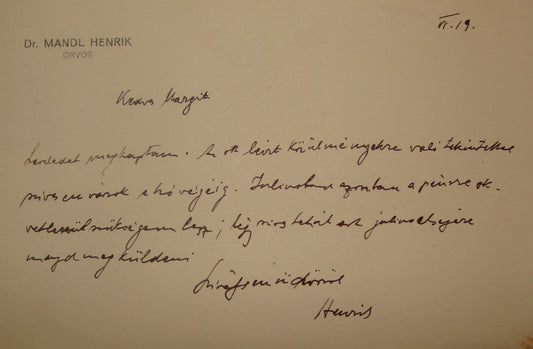 VI. 19.
Dr. MANDL HENRIK
ORVOS
Kedves Margit
Leveledet megkaptam. Az ott leírt körülményekre való tekintettel
szívesen várok a hó végéig. Juliusban azonban a pénzre ok-
vetlenül szükségem lesz, légy szíves tehát azt julius elsejére
majd megküldeni
Szívélyesen üdvözöl
Henrik